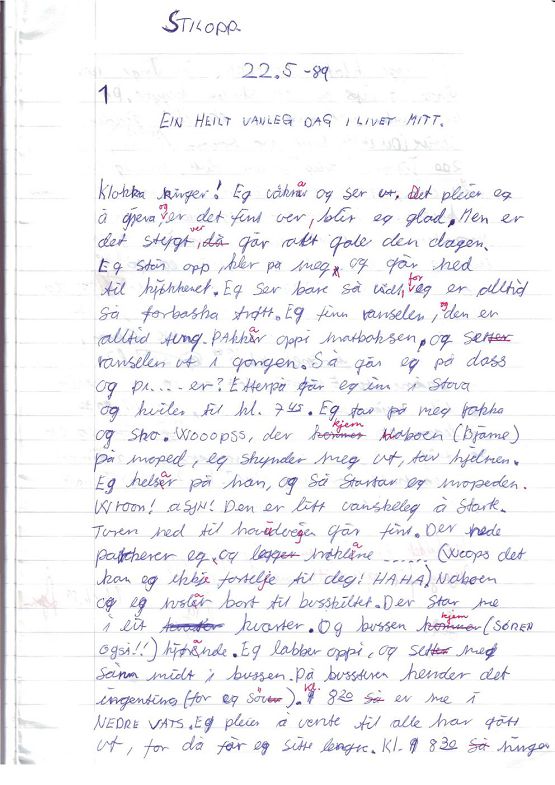 STILOPP.
22.5-89
1
EIN HEILT VANLEG DAG I LIVET MITT.
Klokka ringer! Eg våknar og ser ut. Det pleier eg
å gjera, og er det fint ver, blir eg glad. Men er
det stygt ver, då går alt gale den dagen.
Eg står opp, kler på meg, og går ned
til kjøkkenet. Eg ser bare så vidt, for eg er alltid
så forbaska trøtt. Eg finn ranselen, og den er
alltid tung. Pakkar oppi matboksen, og setter
ranselen ut i gongen. Så går eg på dass
og pi.... er? Etterpå går eg inn i stova
og kviler til kl. 7 45. Eg tar på meg jakka
og sko. WOOOPSS, der kommer kjem naboen (Bjarne)
på moped, eg skynder meg ut, tar hjelmen.
Eg helsar på han, og så startar eg mopeden.
ASJN! Den er litt vanskeleg å starte.
Turen ned til hovudvegen går fint. Der nede
parkerer eg, og legger ...... (WOOPS det
kan eg ikkje fortelje til deg! HAHA) Naboen
og eg ruslar bort til busskiltet. Der står me
i eit kvarter kvarter. Og bussen kommer kjem (SÅREN
også!!) Eg labber oppi, og setter meg
sånn midt i bussen. På bussturen hender det
ingenting (for eg søver). Kl. 8 20 så er me i
NEDRE VATS. Eg pleier å vente til alle har gått
ut, for då får eg sitte lengre. Kl. 8 30 så ringer